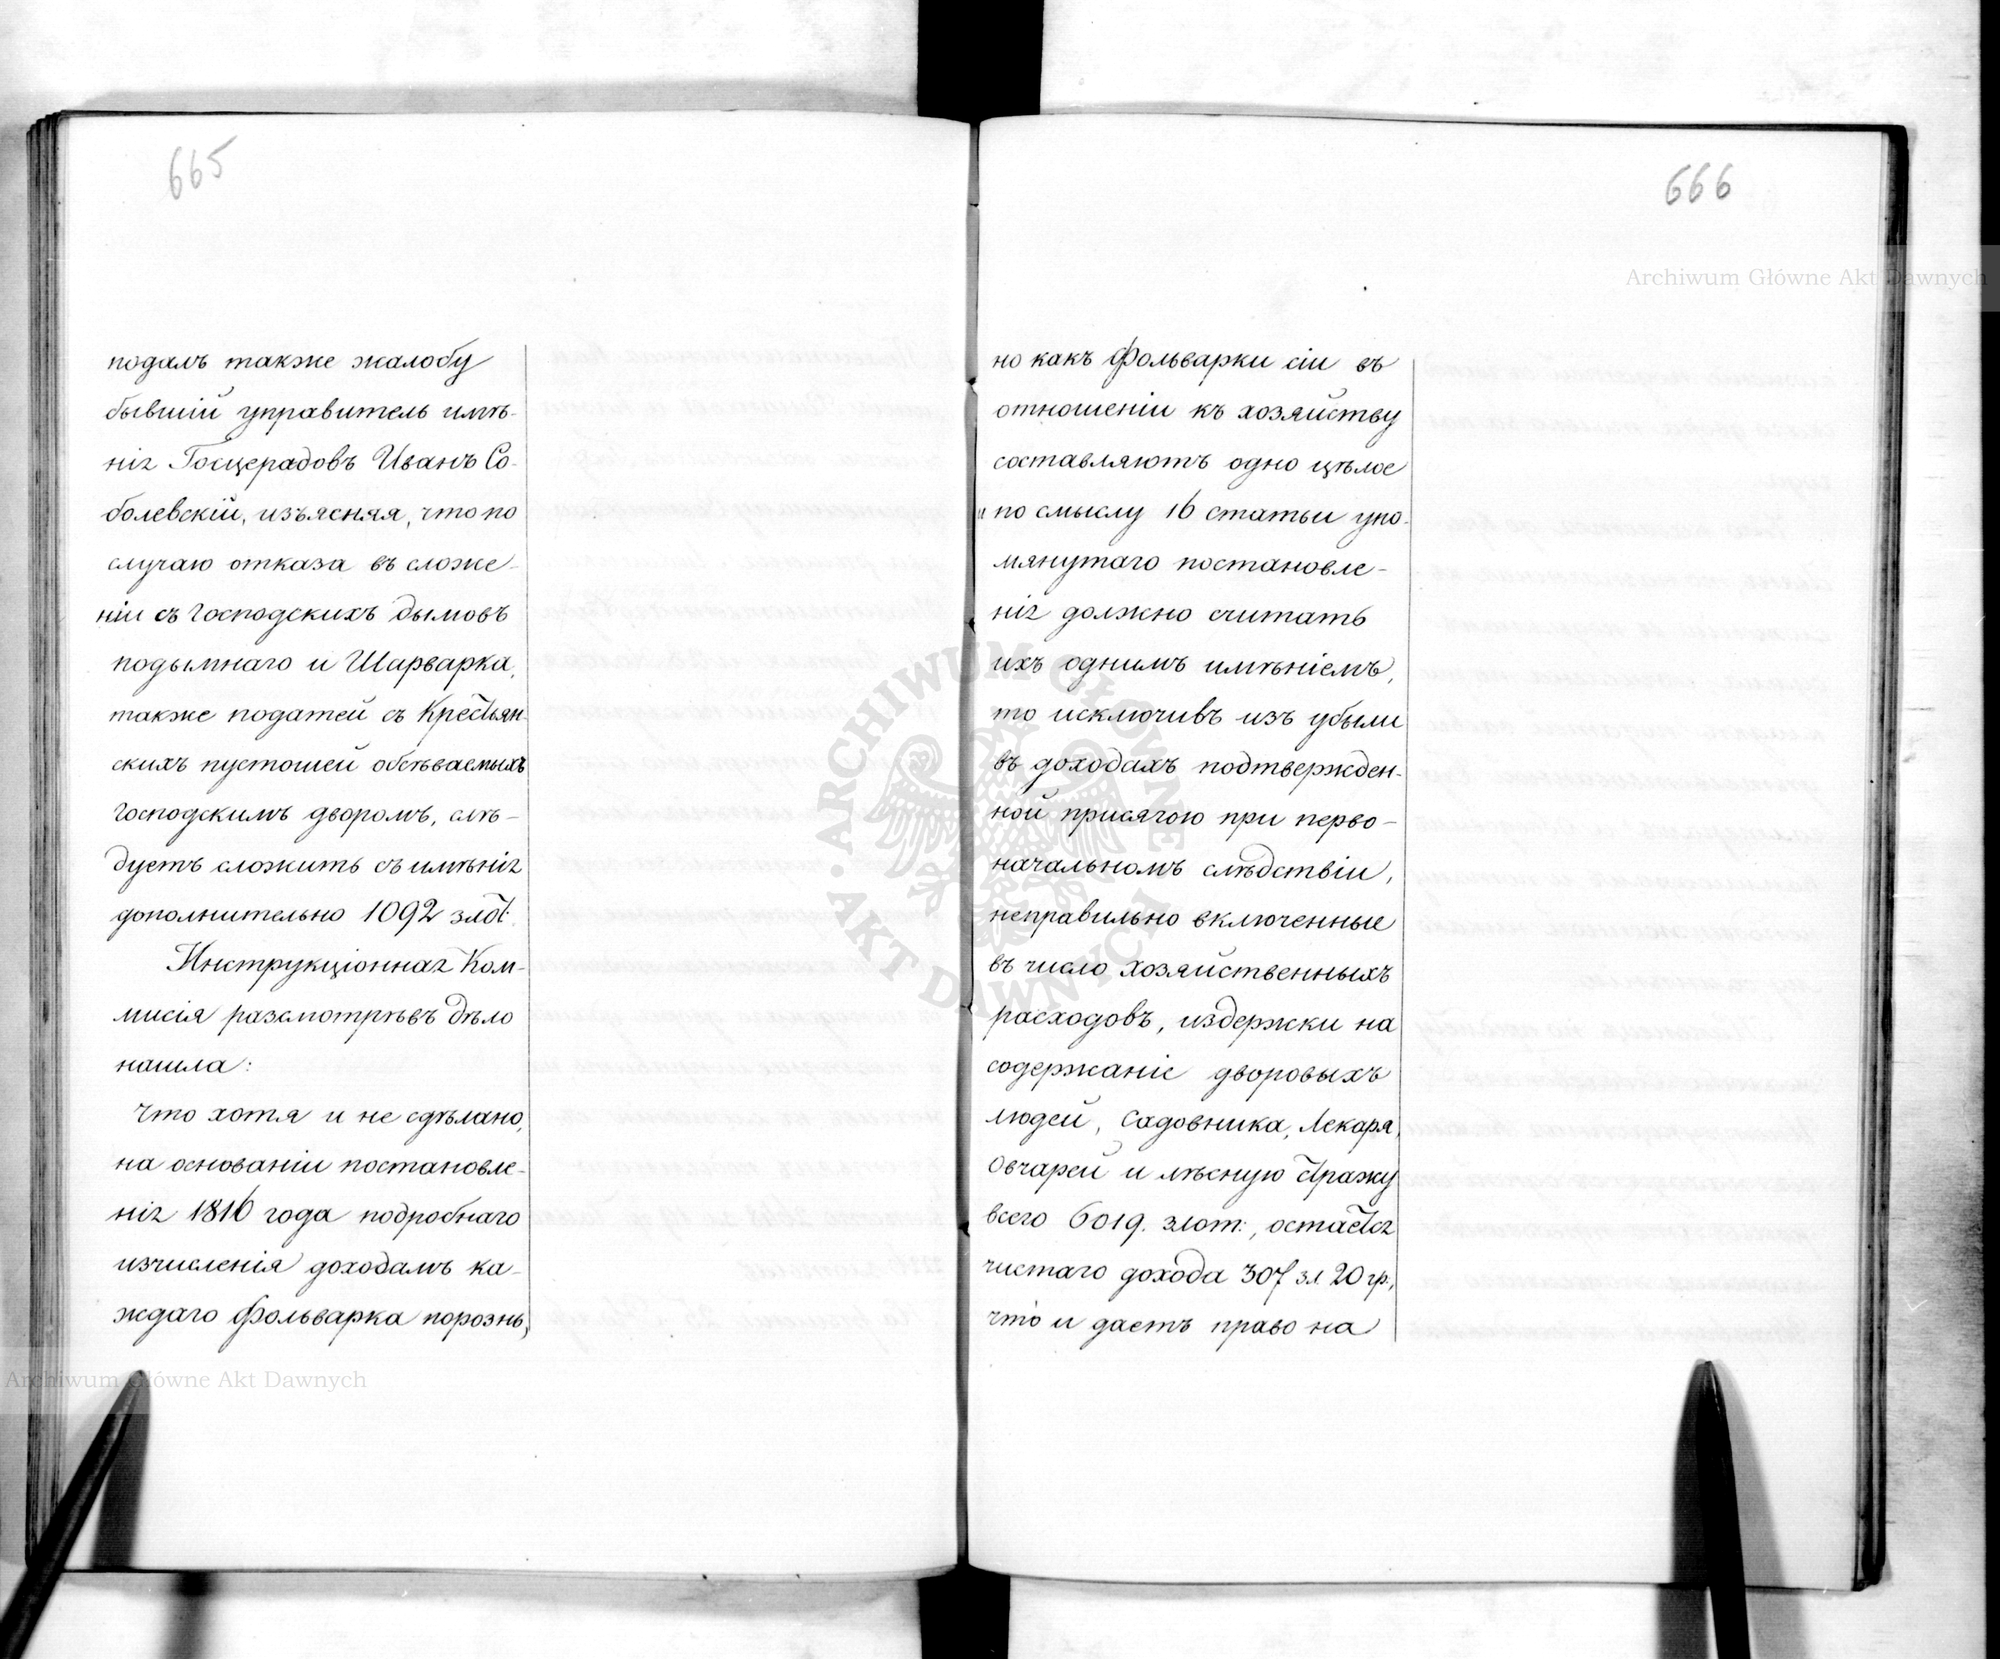 665
подалъ также жалобу
бывшій управитель имѣ-
нія Госцерадовъ Иванъ Со-
болевскій, изъясняя, что по
случаю отказа въ сложе-
ніи съ господскихъ дымовъ
подымнаго и Шарварка,
также податей съ Крестьян-
скихъ пустошей обсѣваемыхъ
господскимъ дворомъ, слѣ-
дуетъ сложить съ имѣнія
дополнительно 1092 злот:
Инструкціонная Ком-
мисія разсмотрѣвъ дѣло
нашла:
Что хотя и не сдѣлано,
на основаніи постановле-
нія 1816 года подробнаго
изчисленія доходамъ ка-
ждаго фольварка порознь,
666
но какъ фольварки сіи въ
отношеніи къ хозяйству
составляютъ одно цѣлое
и по смыслу 16 статьи упо-
мянутаго постановле-
нія должно считать
ихъ однимъ имѣніемъ,
то исключивъ изъ убыли
въ доходахъ подтвержден-
ной присягою при перво-
начальномъ слѣдствіи,
неправильно включенные
въ число хозяйственныхъ
расходовъ, издержки на
содержаніе дворовыхъ
людей, Садовника, Лекаря,
Овчарей и лѣсную стражу
всего 6019. злот:, остается
чистаго дохода 307 зл. 20 гр.,
что и даетъ право на
Archiwum Główne Akt Dawnych
Archiwum Główne Akt Dawnych
· ARCHIWUM GŁÓWNE · AKT DAWNYCH